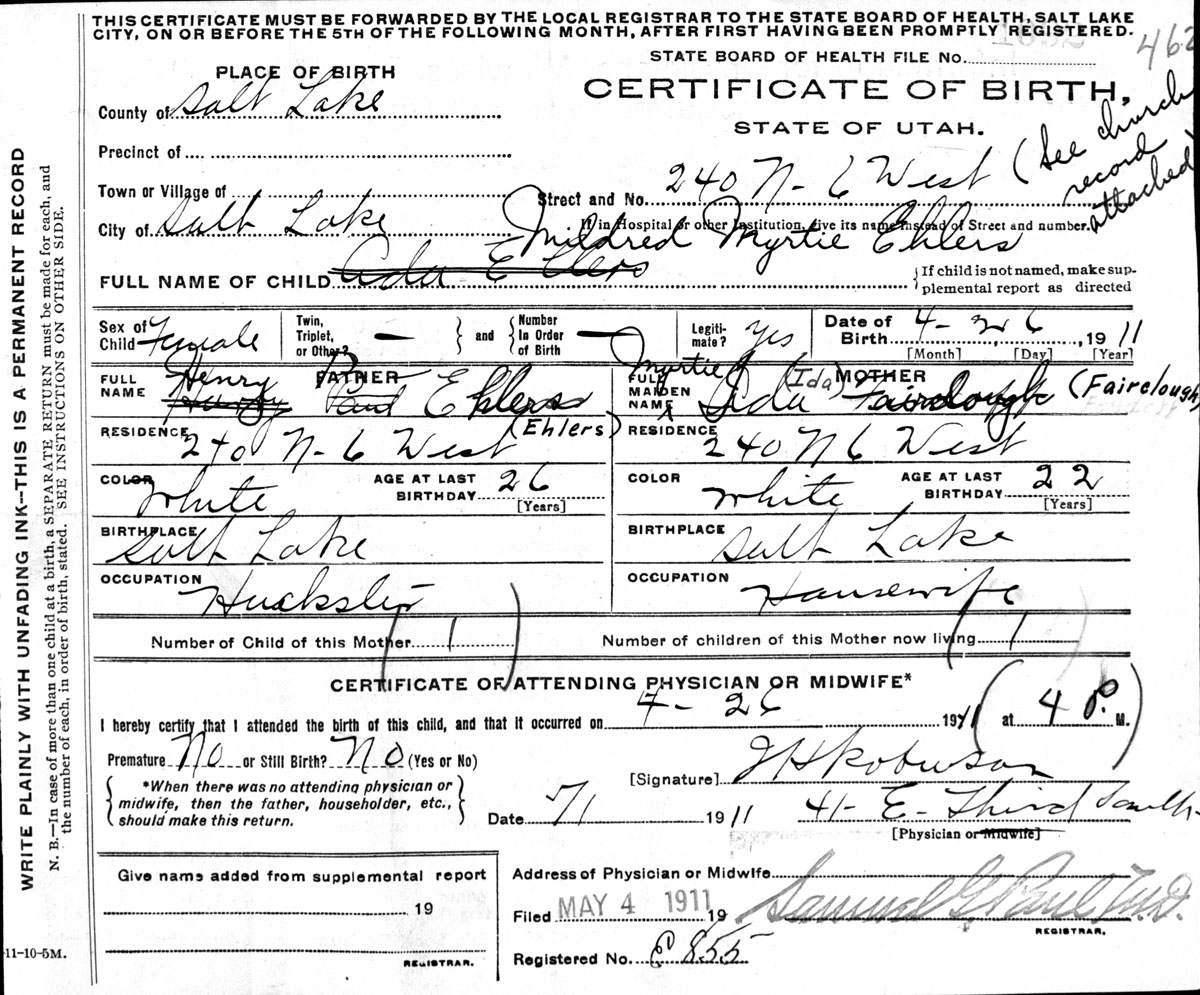 THIS CERTIFICATE MUST BE FORWARDED BY THE LOCAL REGISTRAR TO THE STATE BOARD OF HEALTH, SALT LAKE
CITY, ON OR BEFORE THE 5TH OF THE FOLLOWING MONTH, AFTER FIRST HAVING BEEN PROMPTLY REGISTERED.
462
STATE BOARD OF HEALTH FILE NO.
PLACE OF BIRTH
CERTIFICATE OF BIRTH,
STATE OF UTAH.
County of Salt Lake
Precinct of
Town or Village of
Street and No. 240 N- 6 West (See church record attached)
City of Salt Lake
If in Hospital or other Institution, give its name instead of Street and number.
Mildred Myrtie Ehlers
FULL NAME OF CHILD Ada Ehlers
If child is not named, make supplemental report as directed
Sex of Child Female
Twin, Triplet, or Other? —
and
Number In Order of Birth —
Legitimate? Yes
Date of Birth 4-26, 1911
[Month] [Day] [Year]
FATHER
FULL NAME Henry Paul Ehlers (Ehlers)
MOTHER
FULL MAIDEN NAME Myrtie Ada (Ida) Fairclough (Fairclough)
RESIDENCE 240 N- 6 West
RESIDENCE 240 N 6 West
COLOR White
AGE AT LAST BIRTHDAY 26
[Years]
COLOR White
AGE AT LAST BIRTHDAY 22
[Years]
BIRTHPLACE Salt Lake
BIRTHPLACE Salt Lake
OCCUPATION Huckster
OCCUPATION Housewife
Number of Child of this Mother (1)
Number of children of this Mother now living (1)
CERTIFICATE OF ATTENDING PHYSICIAN OR MIDWIFE*
I hereby certify that I attended the birth of this child, and that it occurred on 4-26 1911 (at 4 P. M.)
Premature No or Still Birth? No (Yes or No)
[Signature] J H Robinson
*When there was no attending physician or
midwife, then the father, householder, etc.,
should make this return.
Date 5/1 1911
41- E- Third South
[Physician or Midwife]
Give name added from supplemental report
19
REGISTRAR.
Address of Physician or Midwife
Filed MAY 4 1911 19
Samuel G. Paul M.D.
REGISTRAR.
Registered No. 855
11-10-5M.
WRITE PLAINLY WITH UNFADING INK--THIS IS A PERMANENT RECORD
N. B.—In case of more than one child at a birth, a SEPARATE RETURN must be made for each, and
the number of each, in order of birth, stated. SEE INSTRUCTIONS ON OTHER SIDE.